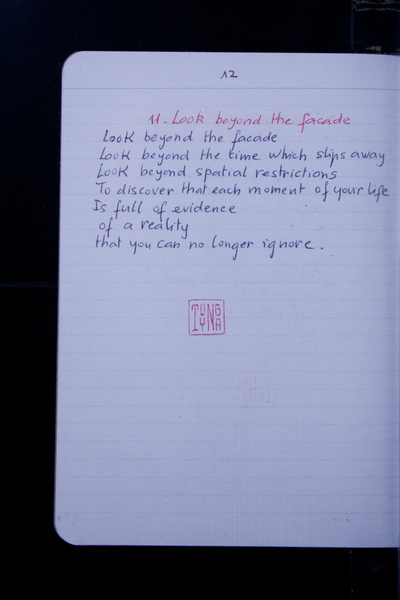 12
11. Look beyond the facade
Look beyond the facade
Look beyond the time which slips away
Look beyond spatial restrictions
To discover that each moment of your life
Is full of evidence
of a reality
that you can no longer ignore.